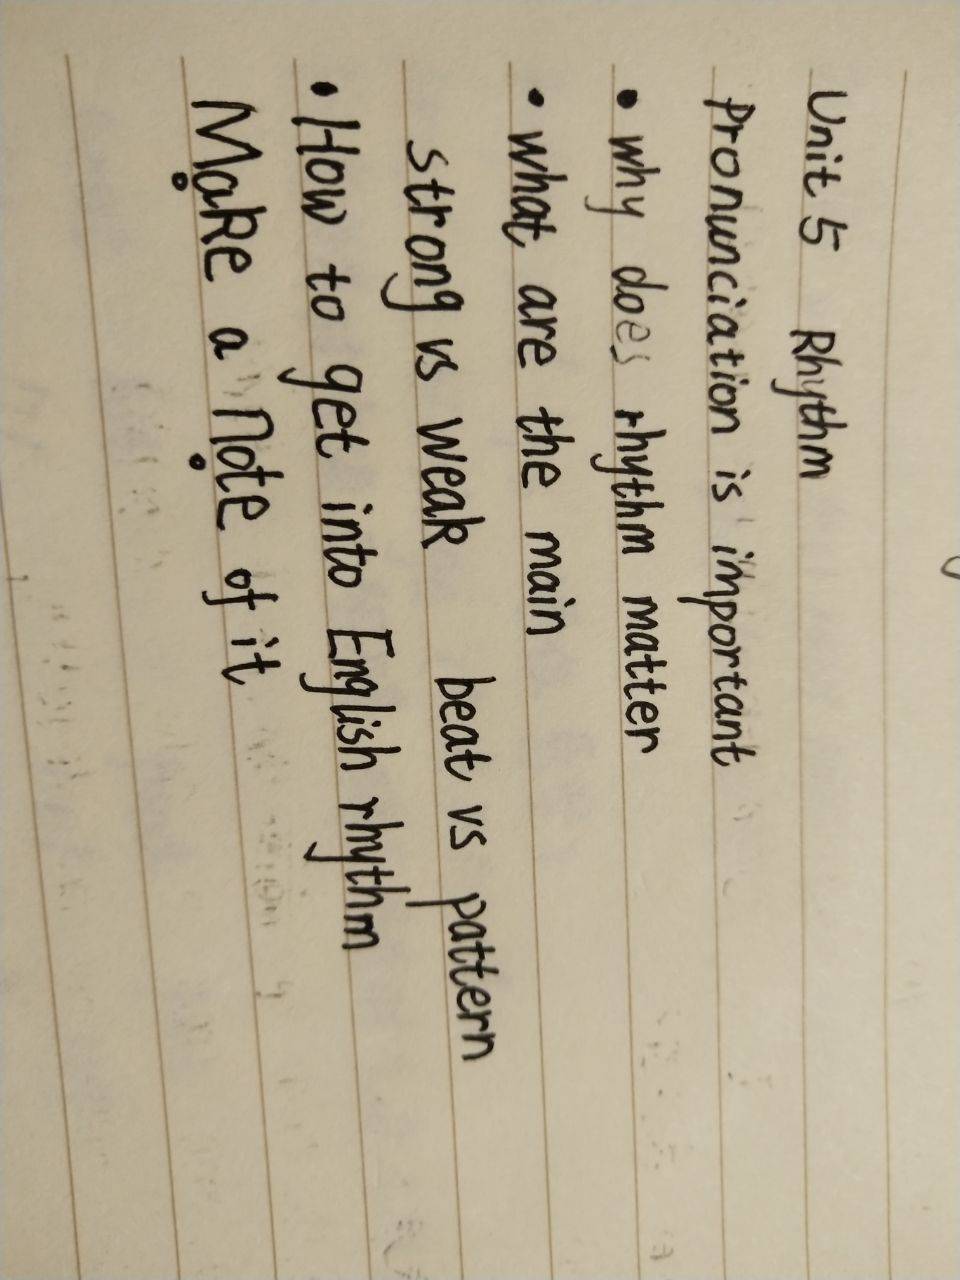 Unit 5 Rhythm
Pronunciation is important
• why does rhythm matter
• what are the main
strong vs weak beat vs pattern
• How to get into English rhythm
Make a Note of it